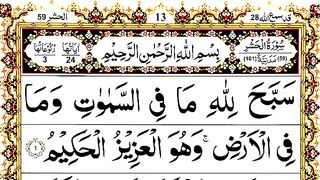 قد سمع الله 28 13 الحشر 59
سُوْرَةُ الْحَشْرِ بِسْمِ اللهِ الرَّحْمٰنِ الرَّحِيْمِ اٰيَاتُهَا 24 رُكُوْعَاتُهَا 3
سَبَّحَ لِلّٰهِ مَا فِي السَّمٰوٰتِ وَمَا
فِي الْاَرْضِ ۚ وَهُوَ الْعَزِيْزُ الْحَكِيْمُ ۝۱